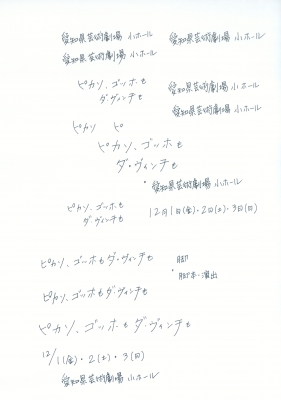 愛知県芸術劇場 小ホール
愛知県芸術劇場 小ホール
愛知県芸術劇場 小ホール
愛知県芸術劇場 小ホール
愛知県芸術劇場 小ホール
ピカソ、ゴッホも
ダ・ヴィンチも
ピカソ ピ
ピカソ、ゴッホも
ダ・ヴィンチも
愛知県芸術劇場 小ホール
ピカソ、ゴッホも
ダ・ヴィンチも
12月1日(金)・2日(土)・3日(日)
ピカソ、ゴッホもダ・ヴィンチも
脚
脚本・演出
ピカソ、ゴッホもダ・ヴィンチも
ピカソ、ゴッホもダ・ヴィンチも
12/1(金)・2(土)・3(日)
愛知県芸術劇場 小ホール